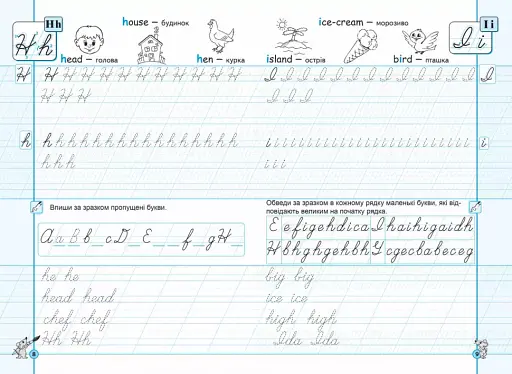 Hh
H h
house – будинок
head – голова
hen – курка
H H H H H H H H H H H H H
H H H
h h h h h h h h h h h h h h h h h h
h h h
h
Впиши за зразком пропущені букви.
A a B b _ c D _ E _ _ f _ g H _
he he
head head
chef chef
Hh Hh
8
ice-cream – морозиво
island – острів
bird – пташка
Ii
I i
I I I I I I I I I I I I I I I
I I I
i i i i i i i i i i i i i i i i i i i i i i i i i i
i i i
i
Обведи за зразком в кожному рядку маленькі букви, які від-
повідають великим на початку рядка.
E e f i g e h d i c a I h a i h i g a i d h
H b h g h g e h b h G c g e c b a b e c e g
big big
ice ice
high high
Ida Ida
9